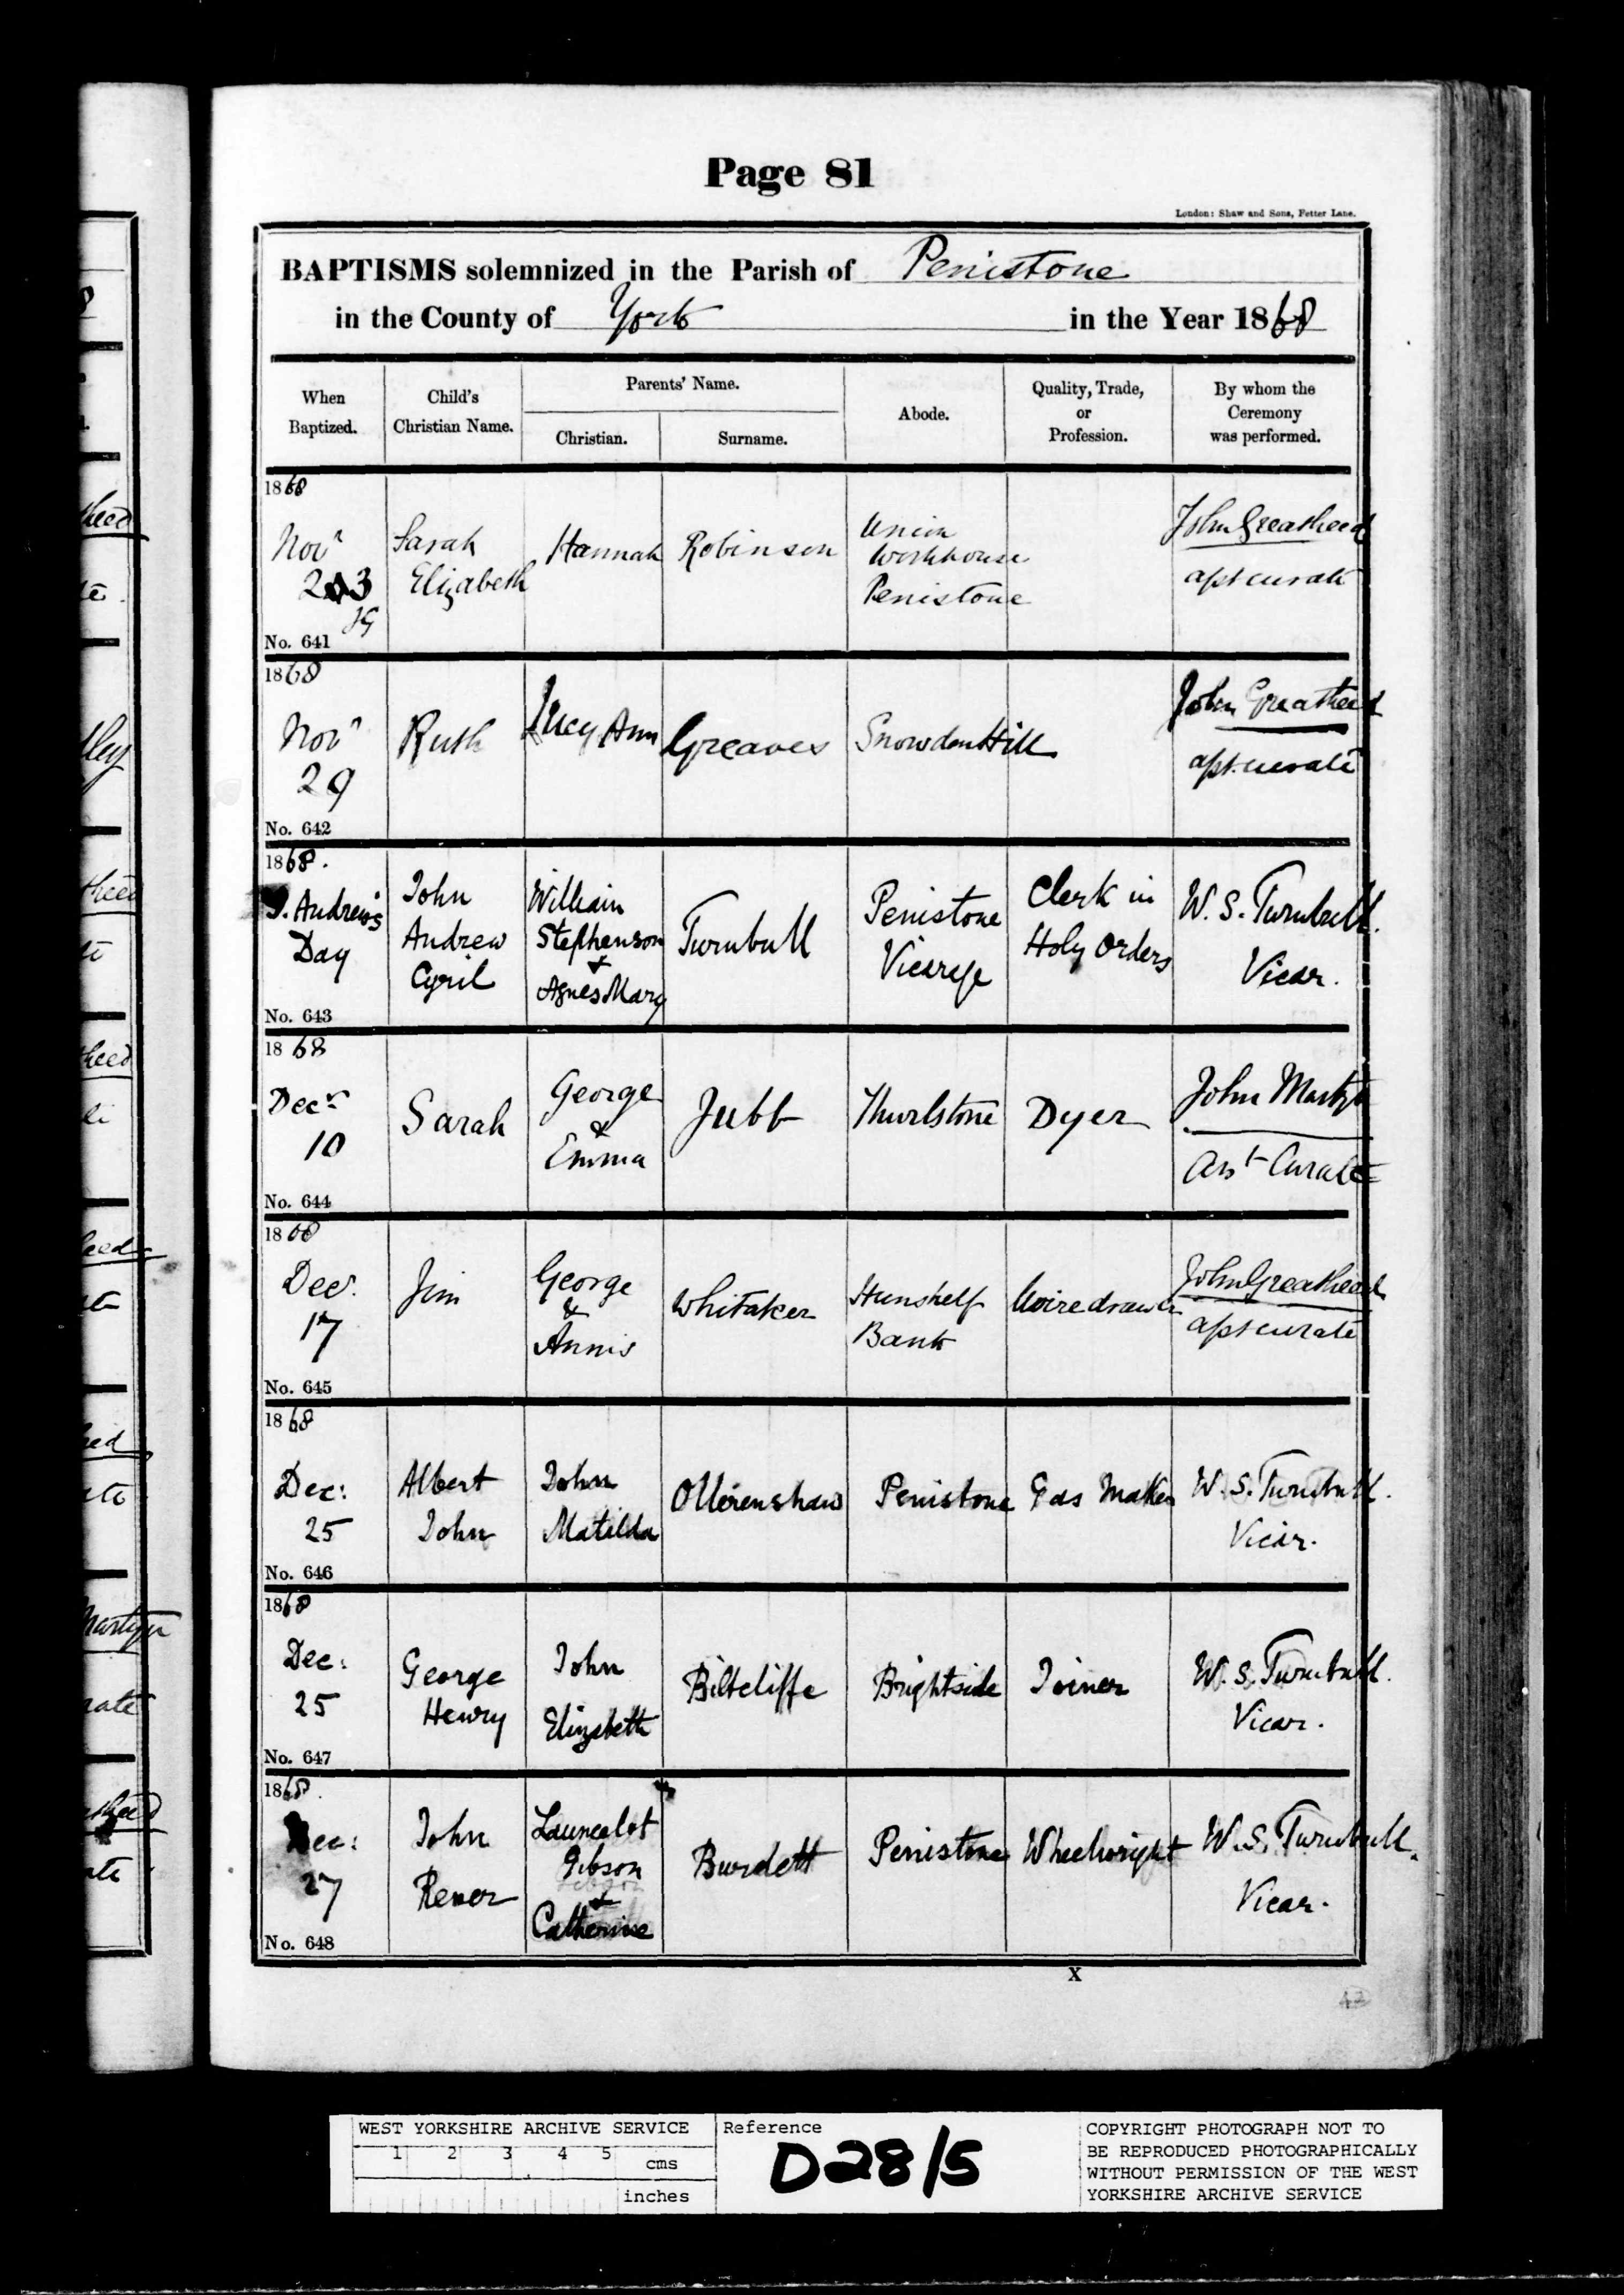 Page 81
London: Shaw and Sons, Fetter Lane.
BAPTISMS solemnized in the Parish of Penistone
in the County of York in the Year 1868
When Baptized.
Child's Christian Name.
Parents' Name.
Christian.
Surname.
Abode.
Quality, Trade, or Profession.
By whom the Ceremony was performed.
1868
Novr 23
JG
No. 641
Sarah
Elizabeth
Hannah
Robinson
Union
Workhouse
Penistone
John Greatheed
asst curate
1868
Novr
29
No. 642
Ruth
Lucy Ann
Greaves
Snowden Hill
John Greatheed
asst. curate
1868.
S. Andrew's
Day
No. 643
John
Andrew
Cyril
William
Stephenson
+
Agnes Mary
Turnbull
Penistone
Vicarage
Clerk in
Holy Orders
W. S. Turnbull.
Vicar.
1868
Decr
10
No. 644
Sarah
George
&
Emma
Jubb
Thurlstone
Dyer
John Martyn
Asst Curate
1868
Decr.
17
No. 645
Jim
George
&
Annis
Whitaker
Hunshelf
Bank
Wiredrawer
John Greatheed
asst curate
1868
Dec:
25
No. 646
Albert
John
John
Matilda
Ollerenshaw
Penistone
Gas Maker
W. S. Turnbull.
Vicar.
1868
Dec:
25
No. 647
George
Henry
John
Elizabeth
Biltcliffe
Brightside
Joiner
W. S. Turnbull.
Vicar.
1868.
Dec:
27
No. 648
John
Rever
Launcelot
Gibson
+
Catherine
Burdett
Penistone
Wheelwright
W. S. Turnbull.
Vicar.
X
42
WEST YORKSHIRE ARCHIVE SERVICE
1 2 3 4 5 cms
inches
Reference
D28/5
COPYRIGHT PHOTOGRAPH NOT TO
BE REPRODUCED PHOTOGRAPHICALLY
WITHOUT PERMISSION OF THE WEST
YORKSHIRE ARCHIVE SERVICE